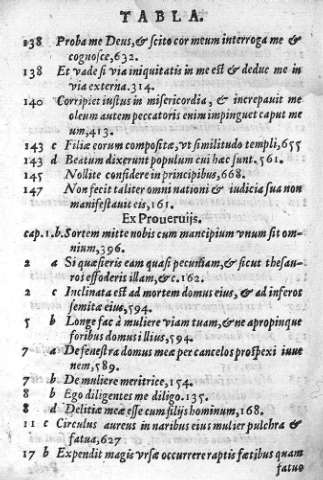 TABLA.
138 Proba me Deus, & scito cor meum interroga me &
cognosce, 632.
138 Et vade si via iniquitatis in me est & deduc me in
via externa. 314.
140 Corripiet iustus in misericordia, & increpauit me
oleum autem peccatoris enim impinguet caput me
um, 413.
143 c Filiæ eorum compositæ, vt similitudo templi, 655
143 d Beatum dixerunt populum cui hæc sunt. 561.
145 Nollite considere in principibus, 668.
147 Non fecit taliter omni nationi & iudicia sua non
manifestauit eis, 161.
Ex Proueruijs.
cap. 1. b. Sortem mitte nobis cum mancipium vnum sit om-
nium, 396.
2 a Si quæsieris eam quasi pecuniam, & sicut thesau-
ros effoderis illam, &c. 162.
2 c Inclinata est ad mortem domus eius, & ad inferos
semitæ eius, 594.
5 b Longe fac à muliere viam tuam, & ne apropinque
foribus domus illius, 594.
7 a De fenestra domus meæ per cancelos prospexi iuue
nem, 589.
7 b De muliere meritrice, 154.
8 b Ego diligentes me diligo. 135.
8 d Delitiæ meæ esse cum filijs hominum, 168.
11 c Circulus aureus in naribus eius mulier pulchra &
fatua, 627
17 b Expendit magis vrsæ occurrere raptis fœtibus quam
fatuo